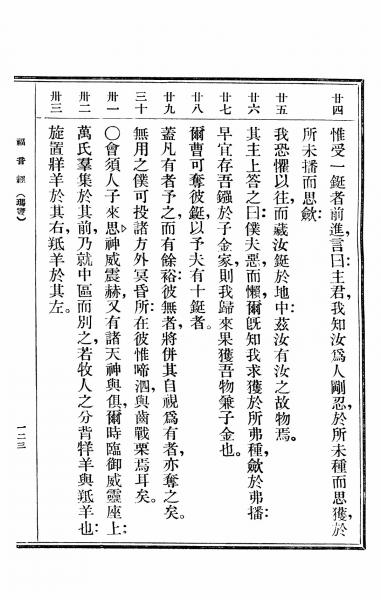 廿四 惟受一鋌者前進言曰:主君,我知汝爲人剛忍,於所未種而思獲,於
所未播而思歛,
廿五 我恐懼以往,而藏汝鋌於地中:茲汝有汝之故物焉。
廿六 其主上答之曰:僕夫惡而懶,爾旣知我求獲於所弗種,歛於弗播:
廿七 早宜存吾鏹於子金家,則我歸來,果獲吾物兼子金也。
廿八 爾曹可奪彼鋌,以予夫有十鋌者。
廿九 蓋凡有者予之,而有餘裕,彼無者,將併其自視爲有者,亦奪之矣。
三十 無用之僕,可投諸方外冥昏所在,彼惟啼泗,與齒戰栗焉耳矣。
卅一 〇會須人子來思,神威震赫,又有諸天神與俱,爾時臨御威靈座上:
卅二 萬氏羣集於其前,乃就中區而別之,若牧人之分背牂羊與羝羊也:
卅三 旋置牂羊於其右,羝羊於其左。
福音經(瑪竇)
一二三